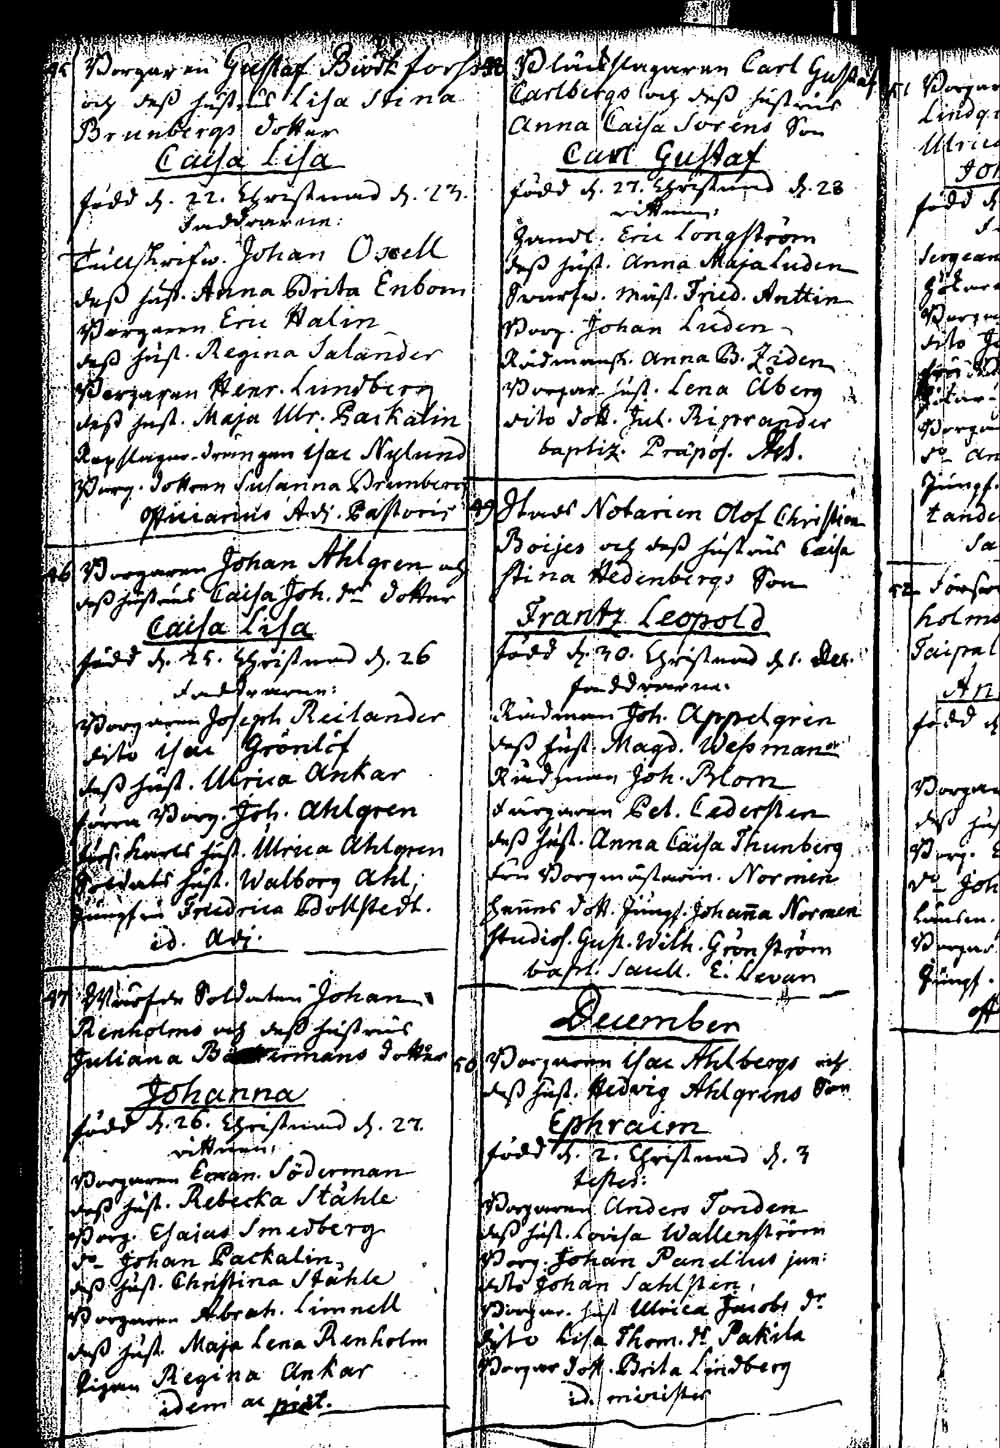 45 Borgaren Gustaf Björkfors
och deß hustrus Lisa Stina
Brunbergs dotter
Caisa Lisa
född d. 22. Christnad d. 23.
Faddrarne:
Tullskrifv. Johan Oxell
deß hust. Anna Brita Enbom
Borgaren Eric Halin
deß hust. Regina Salander
Borgaren Henr. Lundberg
deß hust. Maja Ulr. Packalin
Repslagar-drängen Isac Nylund
Borg. dottren Susanna Brunberg
Officiarius Adj. Pastoris
46 Borgaren Johan Ahlgren och
deß hustrus Caisa Joh. dr dotter
Caisa Lisa
född d. 25. Christnad d. 26
Faddrarne:
Borgaren Joseph Reilander
dito Isac Grönlöf
deß hust. Ulrica Ankar
förra Borg. Joh. Ahlgren
hust. Ulrica Ahlgren
Soldats hust. Walborg Ahl,
Jungfru Fredrica Bollstedt.
id. Adj.
47 Soldaten Johan
Renholms och deß hustrus
Juliana dotter
Johanna
född d. 26. Christnad d. 27.
vittnen:
Borgaren Söderman
deß hust. Rebecka Ståhle
Borg. Esaias Smedberg
do Johan Packalin
deß hust. Christina Ståhle
Borgaren Abrah. Limnell
deß hust. Maja Lena Renholm
Pigan Regina Ankar
idem ac
48 Carl Gustaf
Carlbergs och deß hustrus
Anna Caisa Sorens Son
Carl Gustaf
född d. 27. Christnad d. 28
vittnen:
Handl. Eric Longström
deß hust. Anna Maja Luden
Svarfv. mäst. Fried. Anttin
Borg. Johan Luden
Rådmansh. Anna B. Ziden
Borgar. hust. Lena Åberg
dito dott. Jul. Riprander
baptiz. Præpos.
49 Stads Notarien Olof Christian
Boijes och deß hustrus Caisa
Stina Hedenbergs Son
Frantz Leopold
född d. 30. Christnad d. 1. Dec.
faddrarne.
Rådman Joh. Appelgrén
deß hust. Magd. Weßman
Rådman Joh. Blom
Färgaren Pet. Cedersten
deß hust. Anna Caisa Thunberg
Fru Borgmästarin. Normén
hennes dott. Jungf. Johanna Normen
Studios. Gust. Wilh. Grönström
bapt. Sacell. E. Levan
December
50 Borgaren Isac Ahlbergs och
deß hust. Hedvig Ahlgrens Son
Ephraim
född d. 2. Christnad d. 3
testes:
Borgaren Anders Tonden
deß hust. Lovisa Wallenström
Borg. Johan Panelius jun:
dito Johan Sahlsten,
Borgar. hust Ulrica Jacobs dr
dito Lisa Thom. dr Pakila
Borgar dott. Brita Lindberg
id. minister
51 Borgar
Lindq
Ulrica
Joh
född d
Sergean
Borgar
dito J
Borgar
do An
Jungf.
tande
Sa
52
holms
Taipal
An
född d
Borgar
deß hust
Borg.
do Joh
Borgar
Jungf.
off